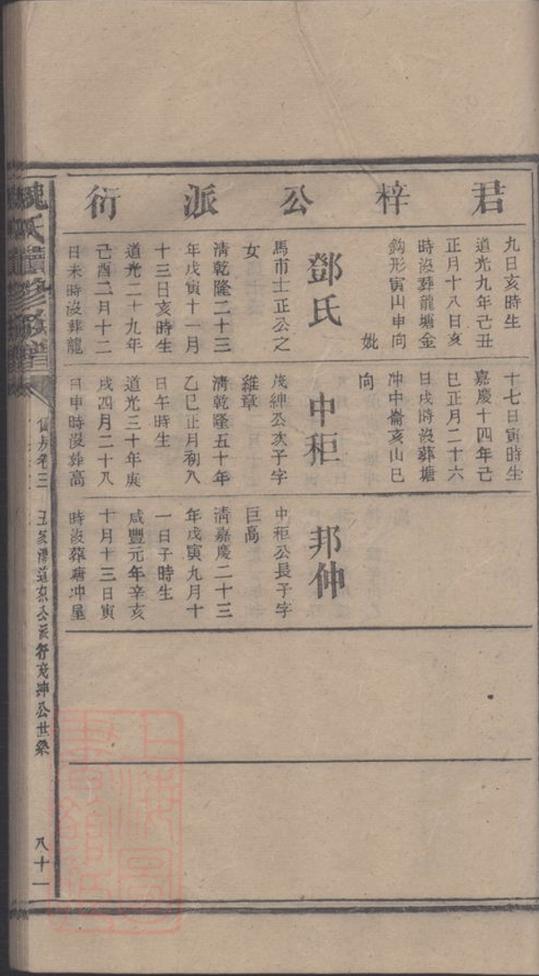 君梓公派衍
九日亥時生
道光九年己丑
正月十八日亥
時沒葬龍塘金
鈎形寅山申向
妣
鄧氏
馬市士正公之
女
清乾隆二十三
年戊寅十一月
十三日亥時生
道光二十九年
己酉二月十二
日未時沒葬龍
十七日寅時生
嘉慶十四年己
巳正月二十六
日戌時沒葬塘
冲中崙亥山巳
向
中秬
茂紳公次子字
維章
清乾隆五十年
乙巳正月初八
日午時生
道光三十年庚
戌四月二十八
日申時沒葬高
邦仲
中秬公長子字
巨高
清嘉慶二十三
年戊寅九月十
一日子時生
咸豐元年辛亥
十月十三日寅
時沒葬塘冲屋
魏氏續修族譜
卷三
公派行茂紳公世系
八十一